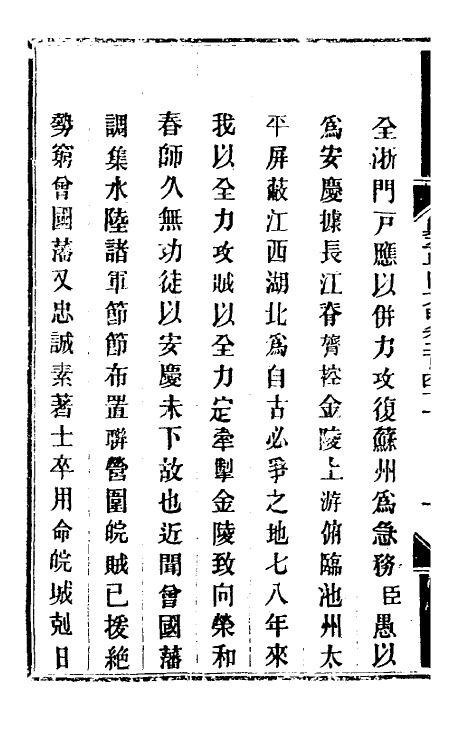 全浙門戶應以併力攻復蘇州爲急務臣愚以
爲安慶據長江脊膂控金陵上游俯臨池州太
平屏蔽江西湖北爲自古必爭之地七八年來
我以全力攻賊以全力定牽掣金陵致向榮和
春師久無功徒以安慶未下故也近聞曾國藩
調集水陸諸軍節節布置聯營圍皖賊已援絕
勢窮曾國藩又忠誠素著士卒用命皖城剋日